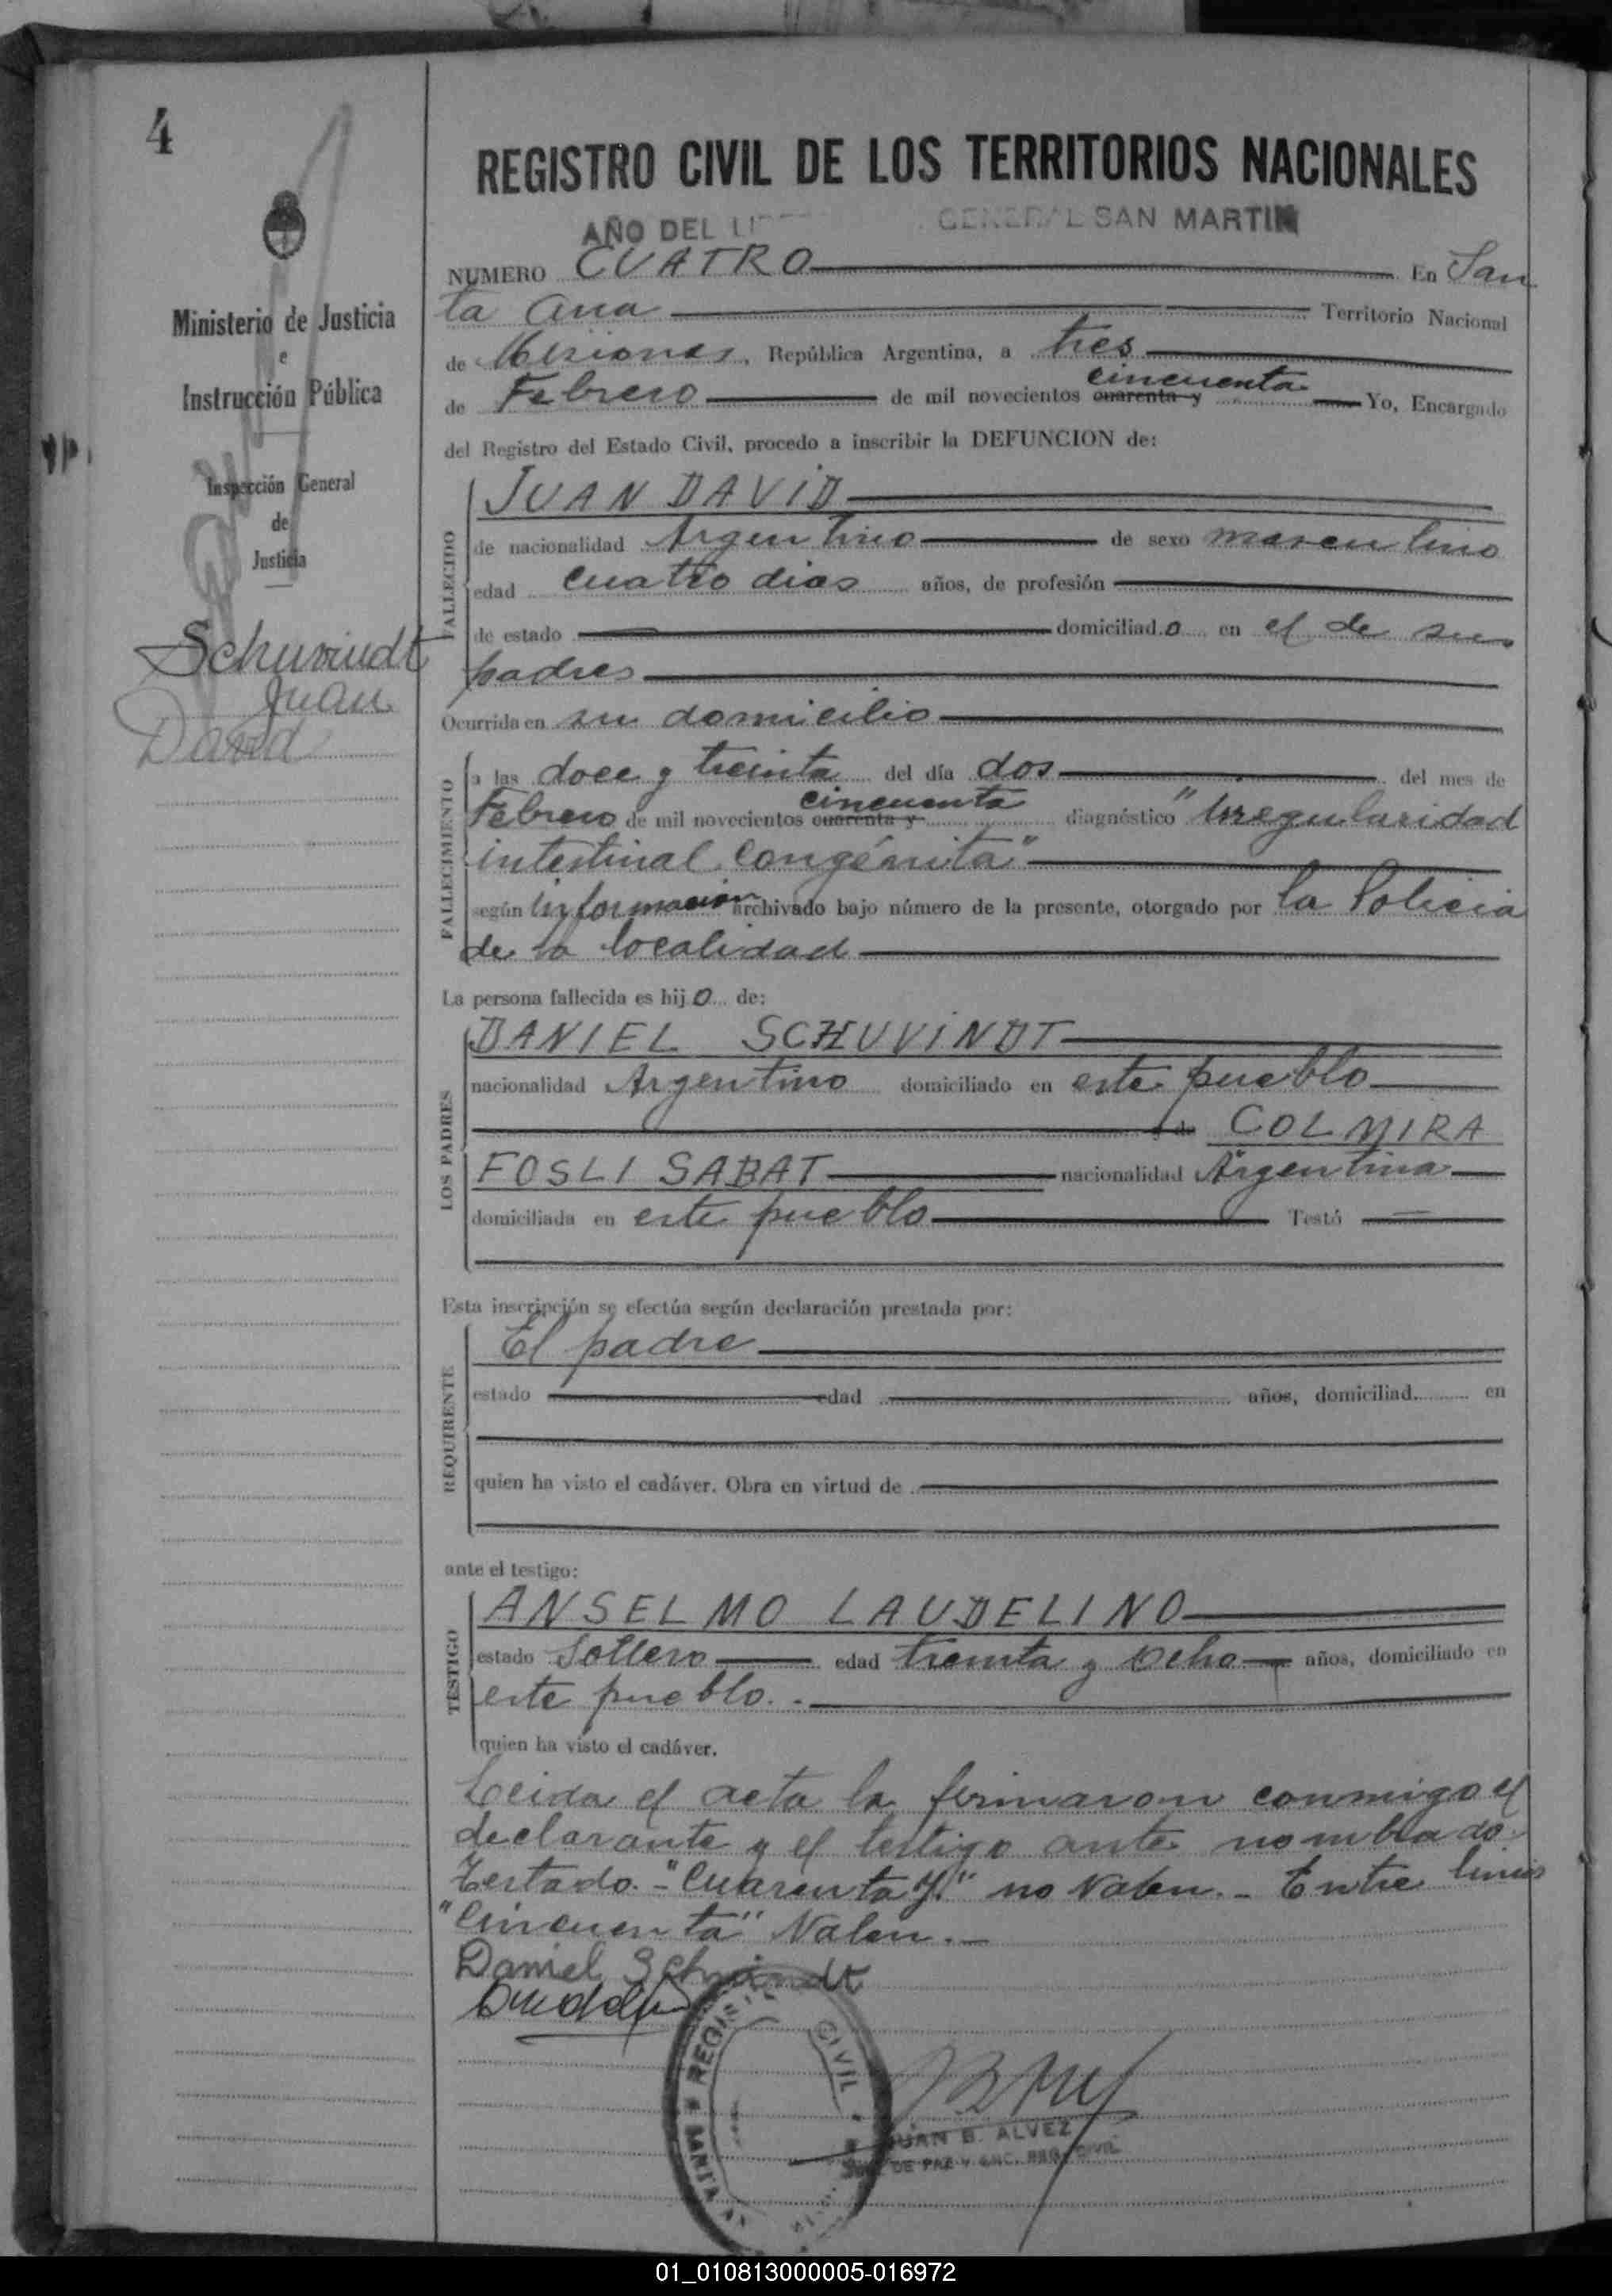 4
Ministerio de Justicia
e
Instrucción Pública
Inspección General
de
Justicia
Schuvindt
Juan
David
REGISTRO CIVIL DE LOS TERRITORIOS NACIONALES
AÑO DEL GENERAL SAN MARTIN
NUMERO CUATRO En San
ta Ana Territorio Nacional
de Misiones, República Argentina, a tres
cincuenta
de Febrero de mil novecientos cuarenta y Yo, Encargado
del Registro del Estado Civil, procedo a inscribir la DEFUNCION de:
FALLECIDO
JUAN DAVID
de nacionalidad Argentino de sexo masculino
edad cuatro dias años, de profesión
de estado domiciliado en el de sus
padres
Ocurrida en su domicilio
FALLECIMIENTO
a las doce y treinta del día dos del mes de
cincuenta
Febrero de mil novecientos cuarenta y diagnóstico "Irregularidad
intestinal congénita"
según información archivado bajo número de la presente, otorgado por la Policia
de la localidad
La persona fallecida es hijo de:
LOS PADRES
DANIEL SCHUVINDT
nacionalidad Argentino domiciliado en este pueblo
y de COLMIRA
FOSLI SABAT nacionalidad Argentina
domiciliada en este pueblo Testó
Esta inscripción se efectúa según declaración prestada por:
REQUIRENTE
El padre
estado edad años, domiciliad en
quien ha visto el cadáver. Obra en virtud de
ante el testigo:
TESTIGO
ANSELMO LAUDELINO
estado Soltero edad treinta y ocho años, domiciliado en
este pueblo.-
quien ha visto el cadáver.
Leida el acta la firmaron conmigo el
declarante y el testigo ante nombrado.
Testado.-"Cuarenta y" no Valen.- Entre linias
"Cincuenta" Valen.-
Daniel Schuvindt
REGISTRO CIVIL
SANTA
JUAN B. ALVEZ
JUEZ DE PAZ Y ENC. REG. CIVIL
01_010813000005-016972